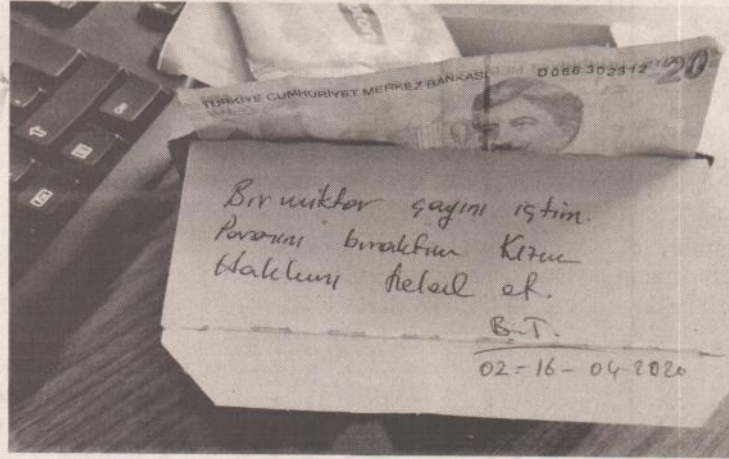 TÜRKİYE CUMHURİYET MERKEZ BANKASI
D066 302312
20
Bir miktar çayını içtim.
Parasını bıraktım Kızım
Hakkını helal et.
B.T.
02-16-04-2020